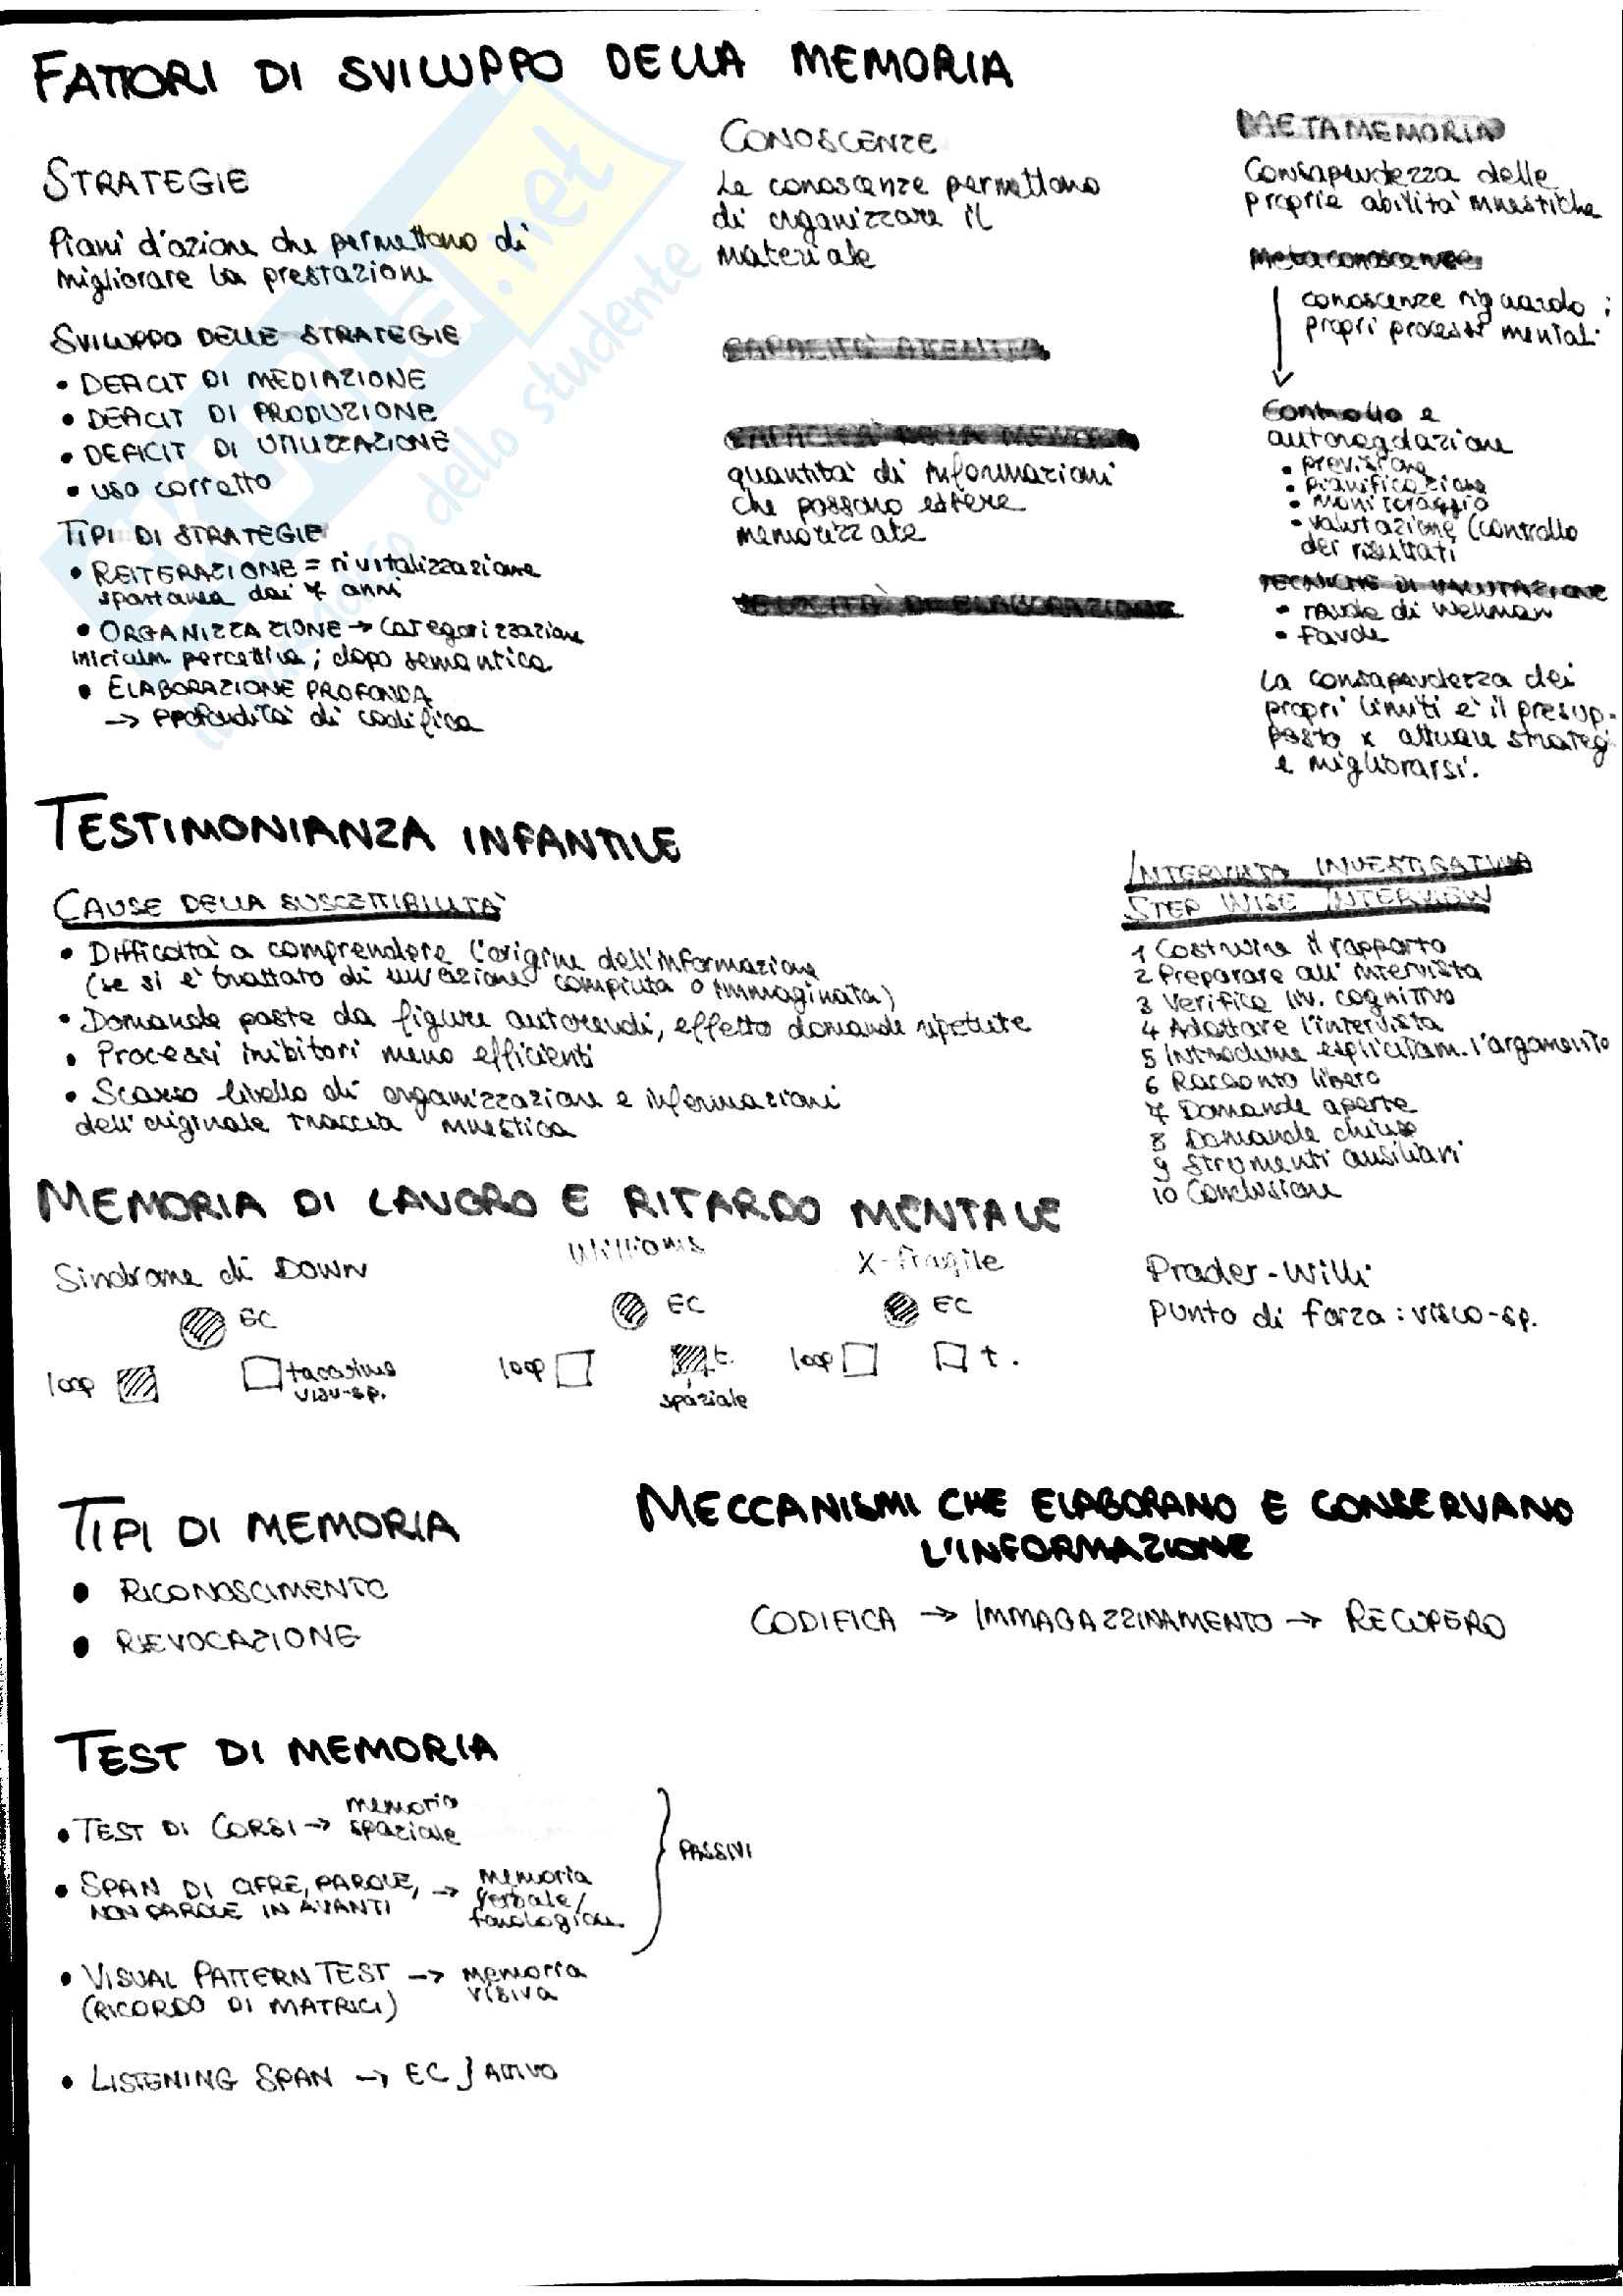 FATTORI DI SVILUPPO DELLA MEMORIA
STRATEGIE
Piani d'azione che permettono di
migliorare la prestazione
SVILUPPO DELLE STRATEGIE
• DEFICIT DI MEDIAZIONE
• DEFICIT DI PRODUZIONE
• DEFICIT DI UTILIZZAZIONE
• uso corretto
TIPI DI STRATEGIE
• REITERAZIONE = rivitalizzazione
spontanea dai 7 anni
• ORGANIZZAZIONE → categorizzazione
inizialm. percettiva; dopo semantica
• ELABORAZIONE PROFONDA
→ profondità di codifica
CONOSCENZE
Le conoscenze permettono
di organizzare il
materiale
CAPACITÀ ATTENTIVA
CAPACITÀ DELLA MEMORIA
quantità di informazioni
che possono essere
memorizzate
VELOCITÀ DI ELABORAZIONE
METAMEMORIA
Consapevolezza delle
proprie abilità mnestiche
Metaconoscenze
conoscenze riguardo i
propri processi mentali
Controllo e
autoregolazione
• previsione
• pianificazione
• monitoraggio
• valutazione (controllo
dei risultati
TECNICHE DI VALUTAZIONE
• tavole di Wellman
• Favole
La consapevolezza dei
propri limiti è il presup-
posto x attuare strateg
e migliorarsi.
TESTIMONIANZA INFANTILE
CAUSE DELLA SUSCETTIBILITÀ
• Difficoltà a comprendere l'origine dell'informazione
(se si è trattato di un'azione compiuta o immaginata)
• Domande poste da figure autorevoli, effetto domande ripetute
• Processi inibitori meno efficienti
• Scarso livello di organizzazione e informazioni
dell'originale traccia mnestica
INTERVISTA INVESTIGATIVA
STEP WISE INTERVIEW
1 Costruire il rapporto
2 Preparare all'intervista
3 Verifica liv. cognitivo
4 Adattare l'intervista
5 Introdurre esplicitam. l'argomento
6 Racconto libero
7 Domande aperte
8 Domande chiuse
9 Strumenti ausiliari
10 Conclusione
MEMORIA DI LAVORO E RITARDO MENTALE
Sindrome di DOWN
EC
loop
taccuino
visu-sp.
Williams
EC
loop
t.
spaziale
X-fragile
EC
loop
t.
Prader-Willi
punto di forza: visuo-sp.
TIPI DI MEMORIA
• RICONOSCIMENTO
• RIEVOCAZIONE
MECCANISMI CHE ELABORANO E CONSERVANO
L'INFORMAZIONE
CODIFICA → IMMAGAZZINAMENTO → RECUPERO
TEST DI MEMORIA
• TEST DI CORSI → memoria
spaziale
• SPAN DI CIFRE, PAROLE, → memoria
NON PAROLE IN AVANTI verbale/
fonologica
PASSIVI
• VISUAL PATTERN TEST → memoria
(RICORDO DI MATRICI) visiva
• LISTENING SPAN → EC } ATTIVO
.net
dello studente